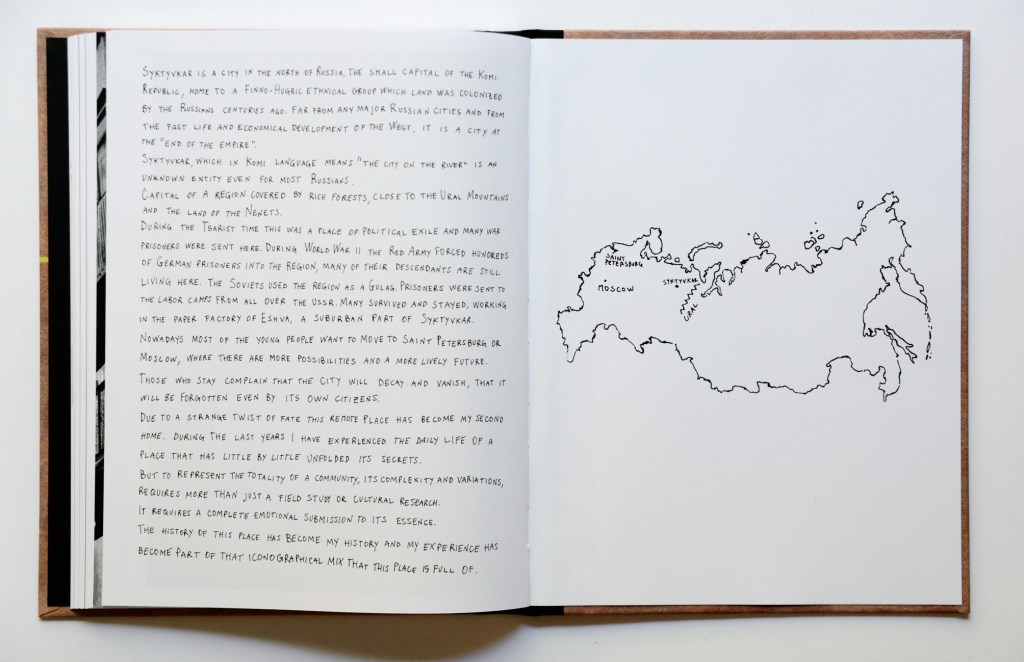 SYKTYVKAR IS A CITY IN THE NORTH OF RUSSIA, THE SMALL CAPITAL OF THE KOMI
REPUBLIC, HOME TO A FINNO-HUGRIC ETHNICAL GROUP WHICH LAND WAS COLONIZED
BY THE RUSSIANS CENTURIES AGO. FAR FROM ANY MAJOR RUSSIAN CITIES AND FROM
THE FAST LIFE AND ECONOMICAL DEVELOPMENT OF THE WEST, IT IS A CITY AT
THE "END OF THE EMPIRE".
SYKTYVKAR, WHICH IN KOMI LANGUAGE MEANS "THE CITY ON THE RIVER" IS AN
UNKNOWN ENTITY EVEN FOR MOST RUSSIANS.
CAPITAL OF A REGION COVERED BY RICH FORESTS, CLOSE TO THE URAL MOUNTAINS
AND THE LAND OF THE NENETS.
DURING THE TSARIST TIME THIS WAS A PLACE OF POLITICAL EXILE AND MANY WAR
PRISONERS WERE SENT HERE. DURING WORLD WAR II THE RED ARMY FORCED HUNDREDS
OF GERMAN PRISONERS INTO THE REGION, MANY OF THEIR DESCENDANTS ARE STILL
LIVING HERE. THE SOVIETS USED THE REGION AS A GULAG. PRISONERS WERE SENT TO
THE LABOR CAMPS FROM ALL OVER THE USSR. MANY SURVIVED AND STAYED, WORKING
IN THE PAPER FACTORY OF ESHVA, A SUBURBAN PART OF SYKTYVKAR.
NOWADAYS MOST OF THE YOUNG PEOPLE WANT TO MOVE TO SAINT PETERSBURG OR
MOSCOW, WHERE THERE ARE MORE POSSIBILITIES AND A MORE LIVELY FUTURE.
THOSE WHO STAY COMPLAIN THAT THE CITY WILL DECAY AND VANISH, THAT IT
WILL BE FORGOTTEN EVEN BY ITS OWN CITIZENS.
DUE TO A STRANGE TWIST OF FATE THIS REMOTE PLACE HAS BECOME MY SECOND
HOME. DURING THE LAST YEARS I HAVE EXPERIENCED THE DAILY LIFE OF A
PLACE THAT HAS LITTLE BY LITTLE UNFOLDED ITS SECRETS.
BUT TO REPRESENT THE TOTALITY OF A COMMUNITY, ITS COMPLEXITY AND VARIATIONS,
REQUIRES MORE THAN JUST A FIELD STUDY OR CULTURAL RESEARCH.
IT REQUIRES A COMPLETE EMOTIONAL SUBMISSION TO ITS ESSENCE.
THE HISTORY OF THIS PLACE HAS BECOME MY HISTORY AND MY EXPERIENCE HAS
BECOME PART OF THAT ICONOGRAPHICAL MIX THAT THIS PLACE IS FULL OF.
SAINT
PETERSBURG
MOSCOW
SYKTYVKAR
URAL